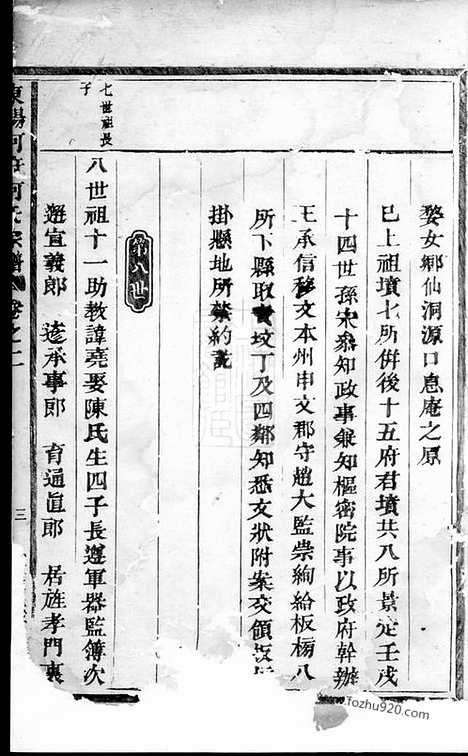 婺女鄉仙洞源口息庵之原
已上祖墳七所併後十五府君墳共八所景定壬戌
十四世孫宋參知政事兼知樞密院事以政府幹辦
王承信移文本州申文郡守趙大監崇絢給板榜八
所下縣取責坟丁及四鄰知悉文狀附案交領板榜
掛懸地所禁約訖
第八世
七世祖長子
八世祖十一助教諱堯娶陳氏生四子長遵軍器監簿次
遜宣義郎 逵承事郎 育通直郎 居旌孝門裏
東陽何府何氏宗譜 卷之二
三
tozhu920.com